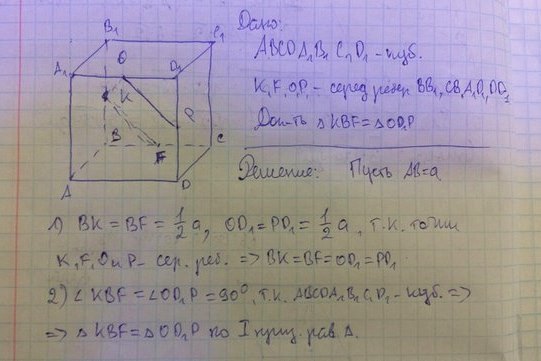 B₁
C₁
O
A₁
D₁
K
P
B
C
F
A
D
Дано:
ABCDA₁B₁C₁D₁ - куб.
K,F,O,P - серед ребер BB₁, CB, A₁D₁, DD₁
Док-ть △KBF=△OD₁P
Решение: Пусть AB=a
1) BK = BF = 1/2 a, OD₁ = PD₁ = 1/2 a, т.к. точки
K, F, O и P - сер. реб. => BK=BF=OD₁=PD₁
2) ∠KBF = ∠OD₁P = 90°, т.к. ABCDA₁B₁C₁D₁ - куб. =>
=> △KBF = △OD₁P по I призн. рав. △.